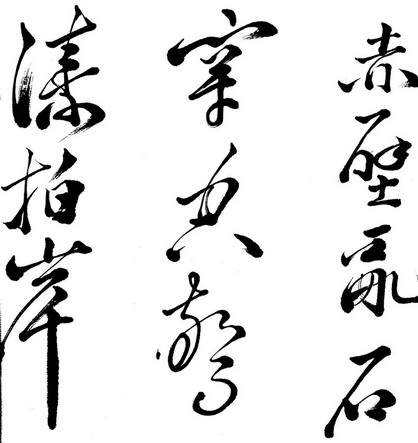 赤壁亂石
穿空驚
濤拍岸